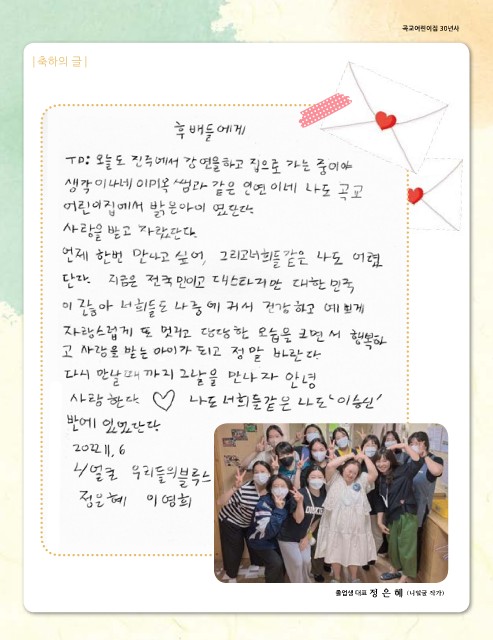 곡교어린이집 30년사
|축하의 글|
후배들에게
TD: 오늘도 진주에서 강연을하고 집으로 가는 중이야
생각이나네 이미옥 쌤과 같은 인연이네 나도 곡교
어린이집에서 밝은아이 였단다.
사랑을 받고 자랐단다.
언제 한번 만나고 싶어, 그리고너희들같은 나도 어렸
단다. 지금은 전국 민이고 대스타지만 대한 민국
이 같놈아 너희들도 나중에 커서 건강하고 예쁘게
자랑스럽게 또 멋지고 당당한 모습을 크면서 행복하
고 사랑을 받는 아이가 되고 정말 바란다
다시 만날때까지 그날을 만나자 안녕
사랑한다 ♡ 나도너희들같은 나도 "이승신"
반에 있었단다.
2022.11.6
니얼굴 우리들의블루스
정은혜 이영희
졸업생 대표 정은혜 (니얼굴 작가)